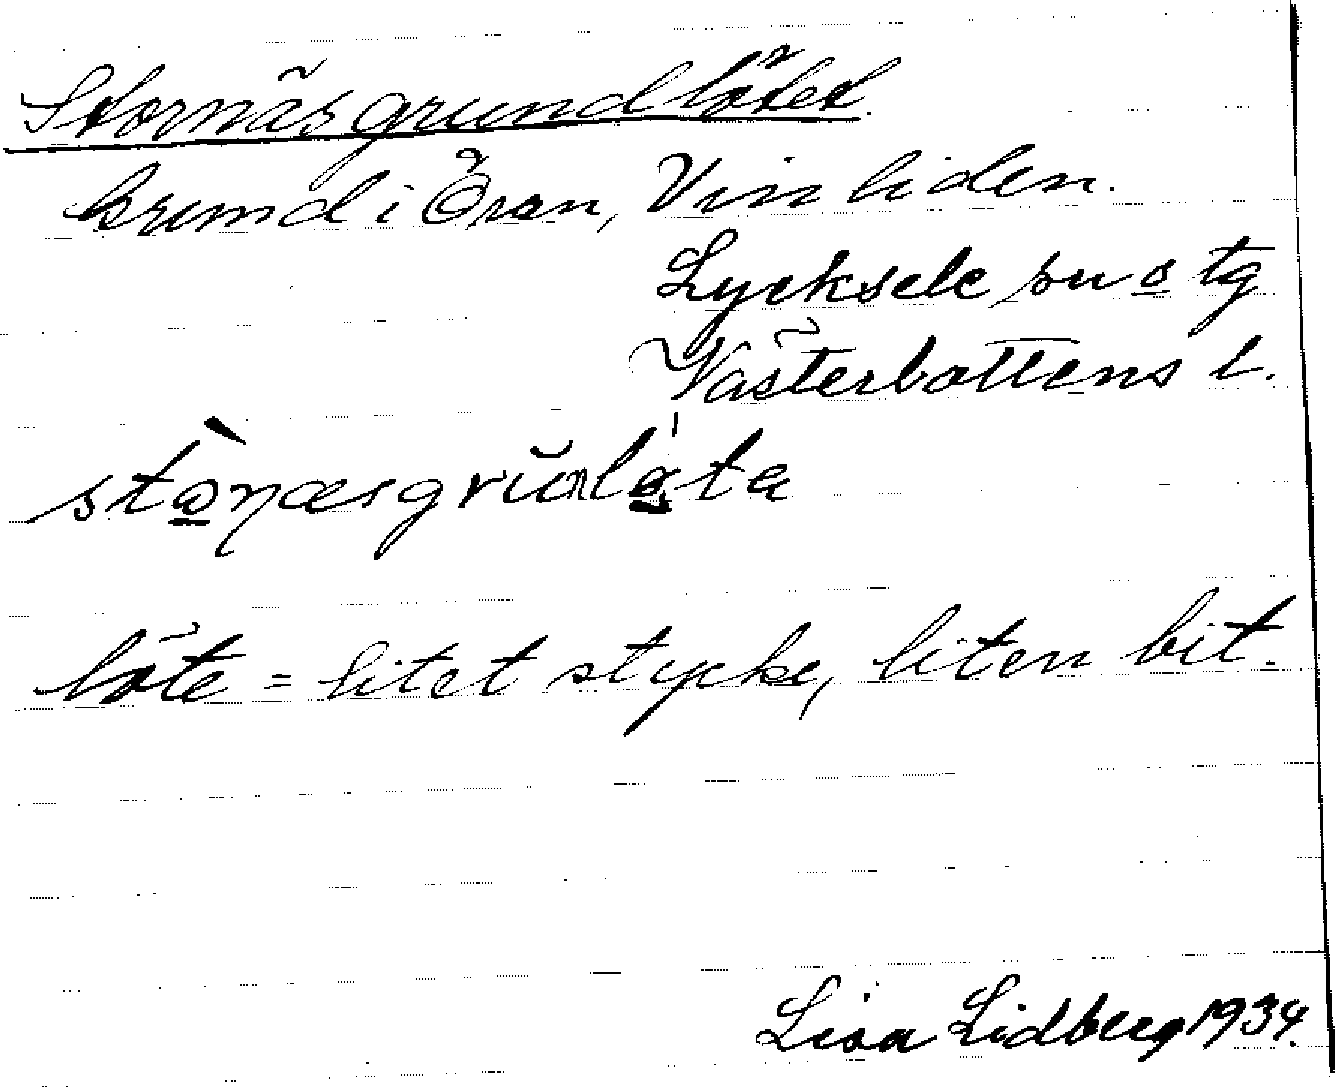 Stornäsgrundlötet.
Grund i Öran, Vinliden.
Lycksele sn o tg
Västerbottens l.
löte = litet stycke, liten bit.
Lisa Lidberg 1934.